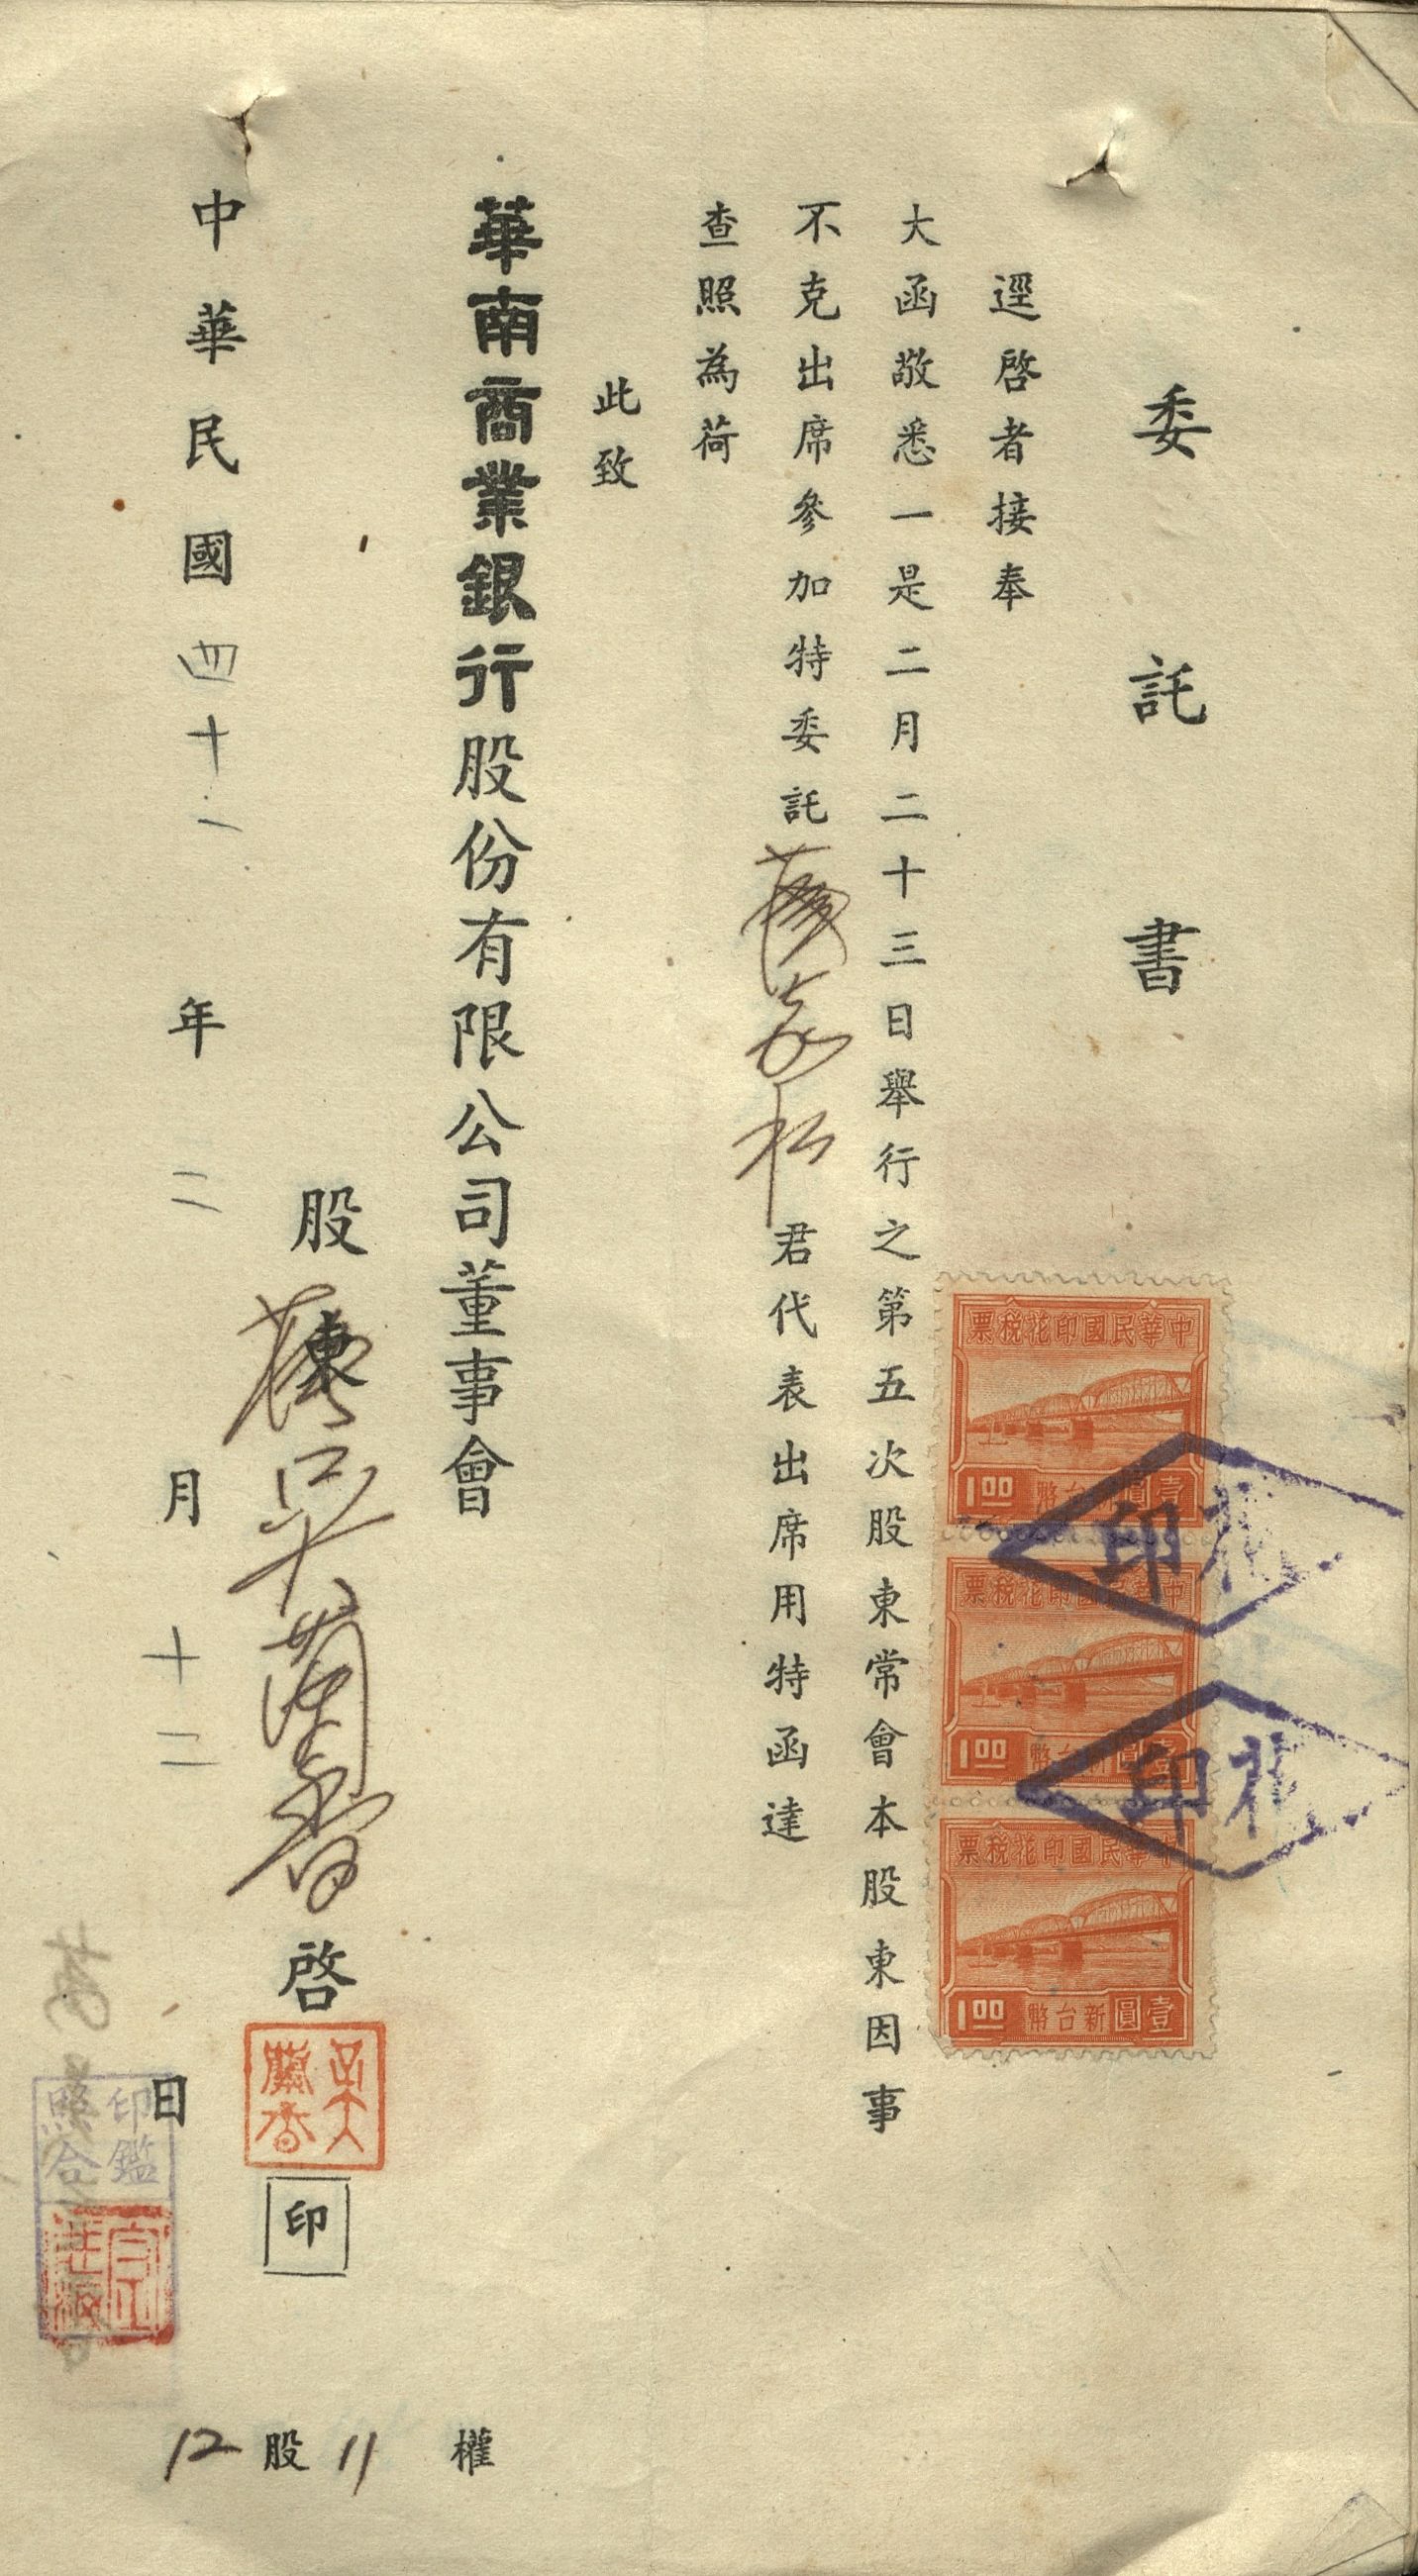 委託書
逕啓者接奉
大函敬悉一是二月二十三日舉行之第五次股東常會本股東因事
不克出席參加特委託嘉松君代表出席用特函達
查照為荷
此致
華南商業銀行股份有限公司董事會
股東吳蘭香啓
印
中華民國四十一年二月十二日
12股11權
中華民國印花稅票
1.00 新台幣壹圓
中華民國印花稅票
1.00 新台幣壹圓
中華民國印花稅票
1.00 新台幣壹圓
印花
印花
吳蘭香
印鑑照合